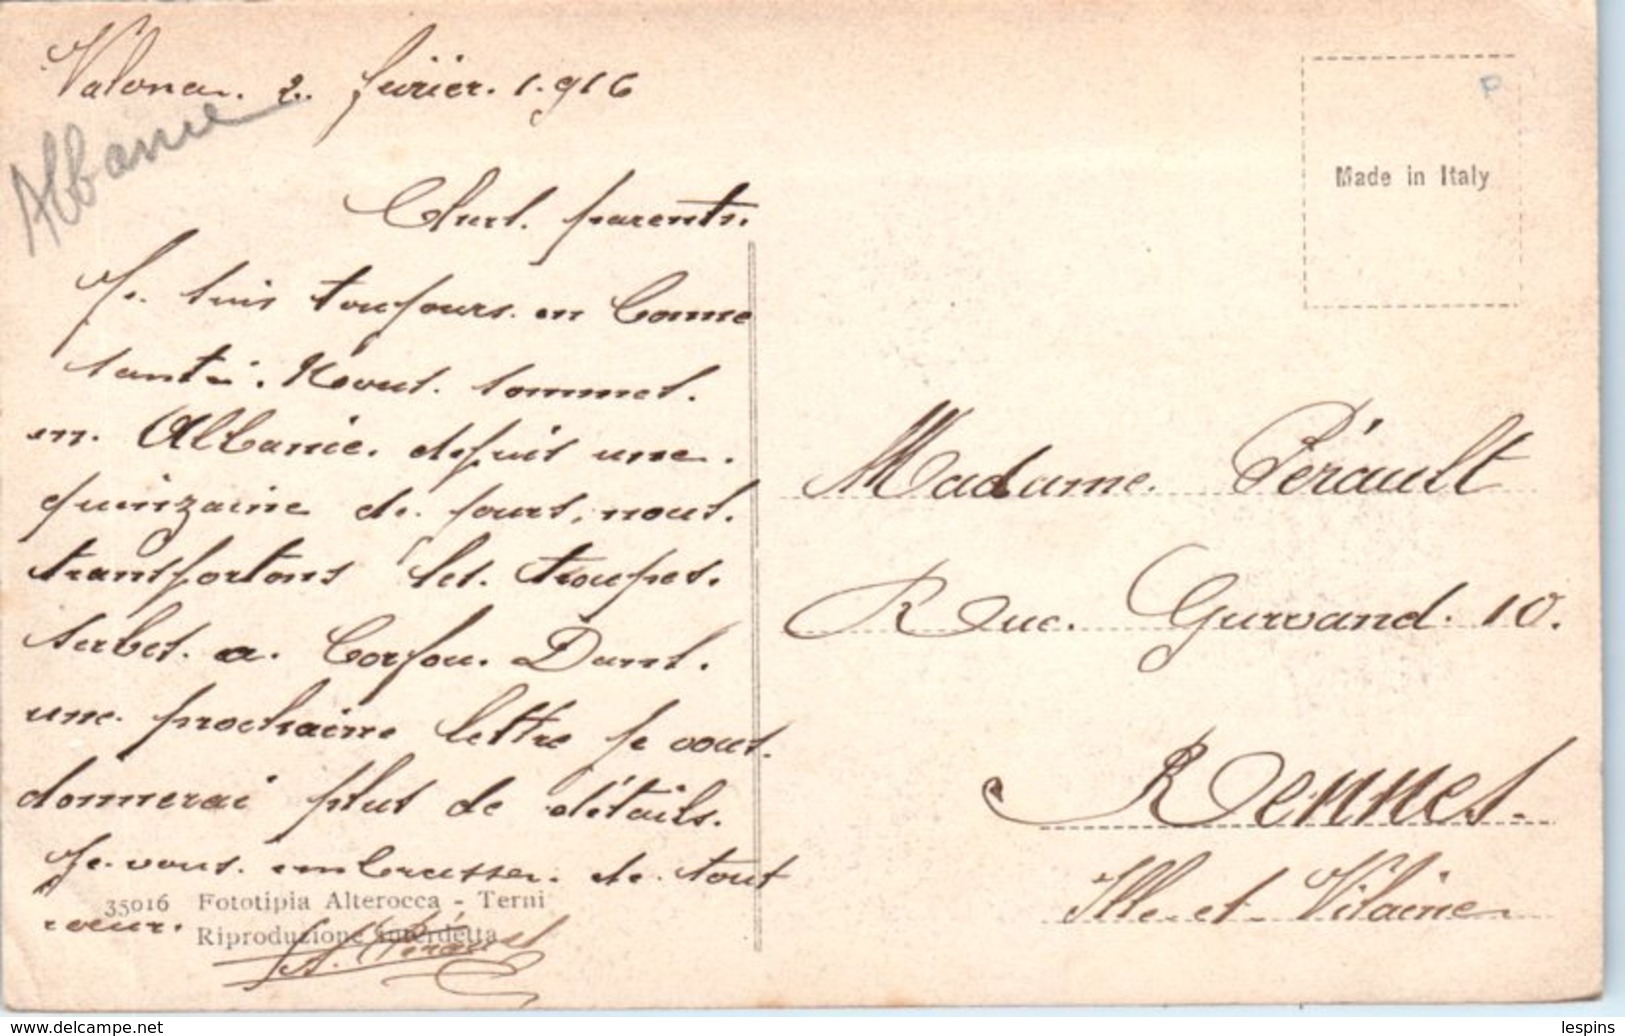 Valona. 2. février. 1.916
Albanie
Chers. parents.
Je. suis toujours. en bonne
santé. Nous. sommes.
en. Albanie. depuis une.
quinzaine de. jours, nous.
transportons les. troupes.
serbes. a. Corfou. Dans.
une. prochaine lettre je vous.
donnerai plus de détails.
Je. vous. embrasse. de. tout
coeur.
A. Pérault
35016 Fototipia Alterocca - Terni
Riproduzione interdetta
P
Made in Italy
Madame. Pérault
Rue. Gurvand. 10.
Rennes.
Ille. et. Vilaine
www.delcampe.net
lespins